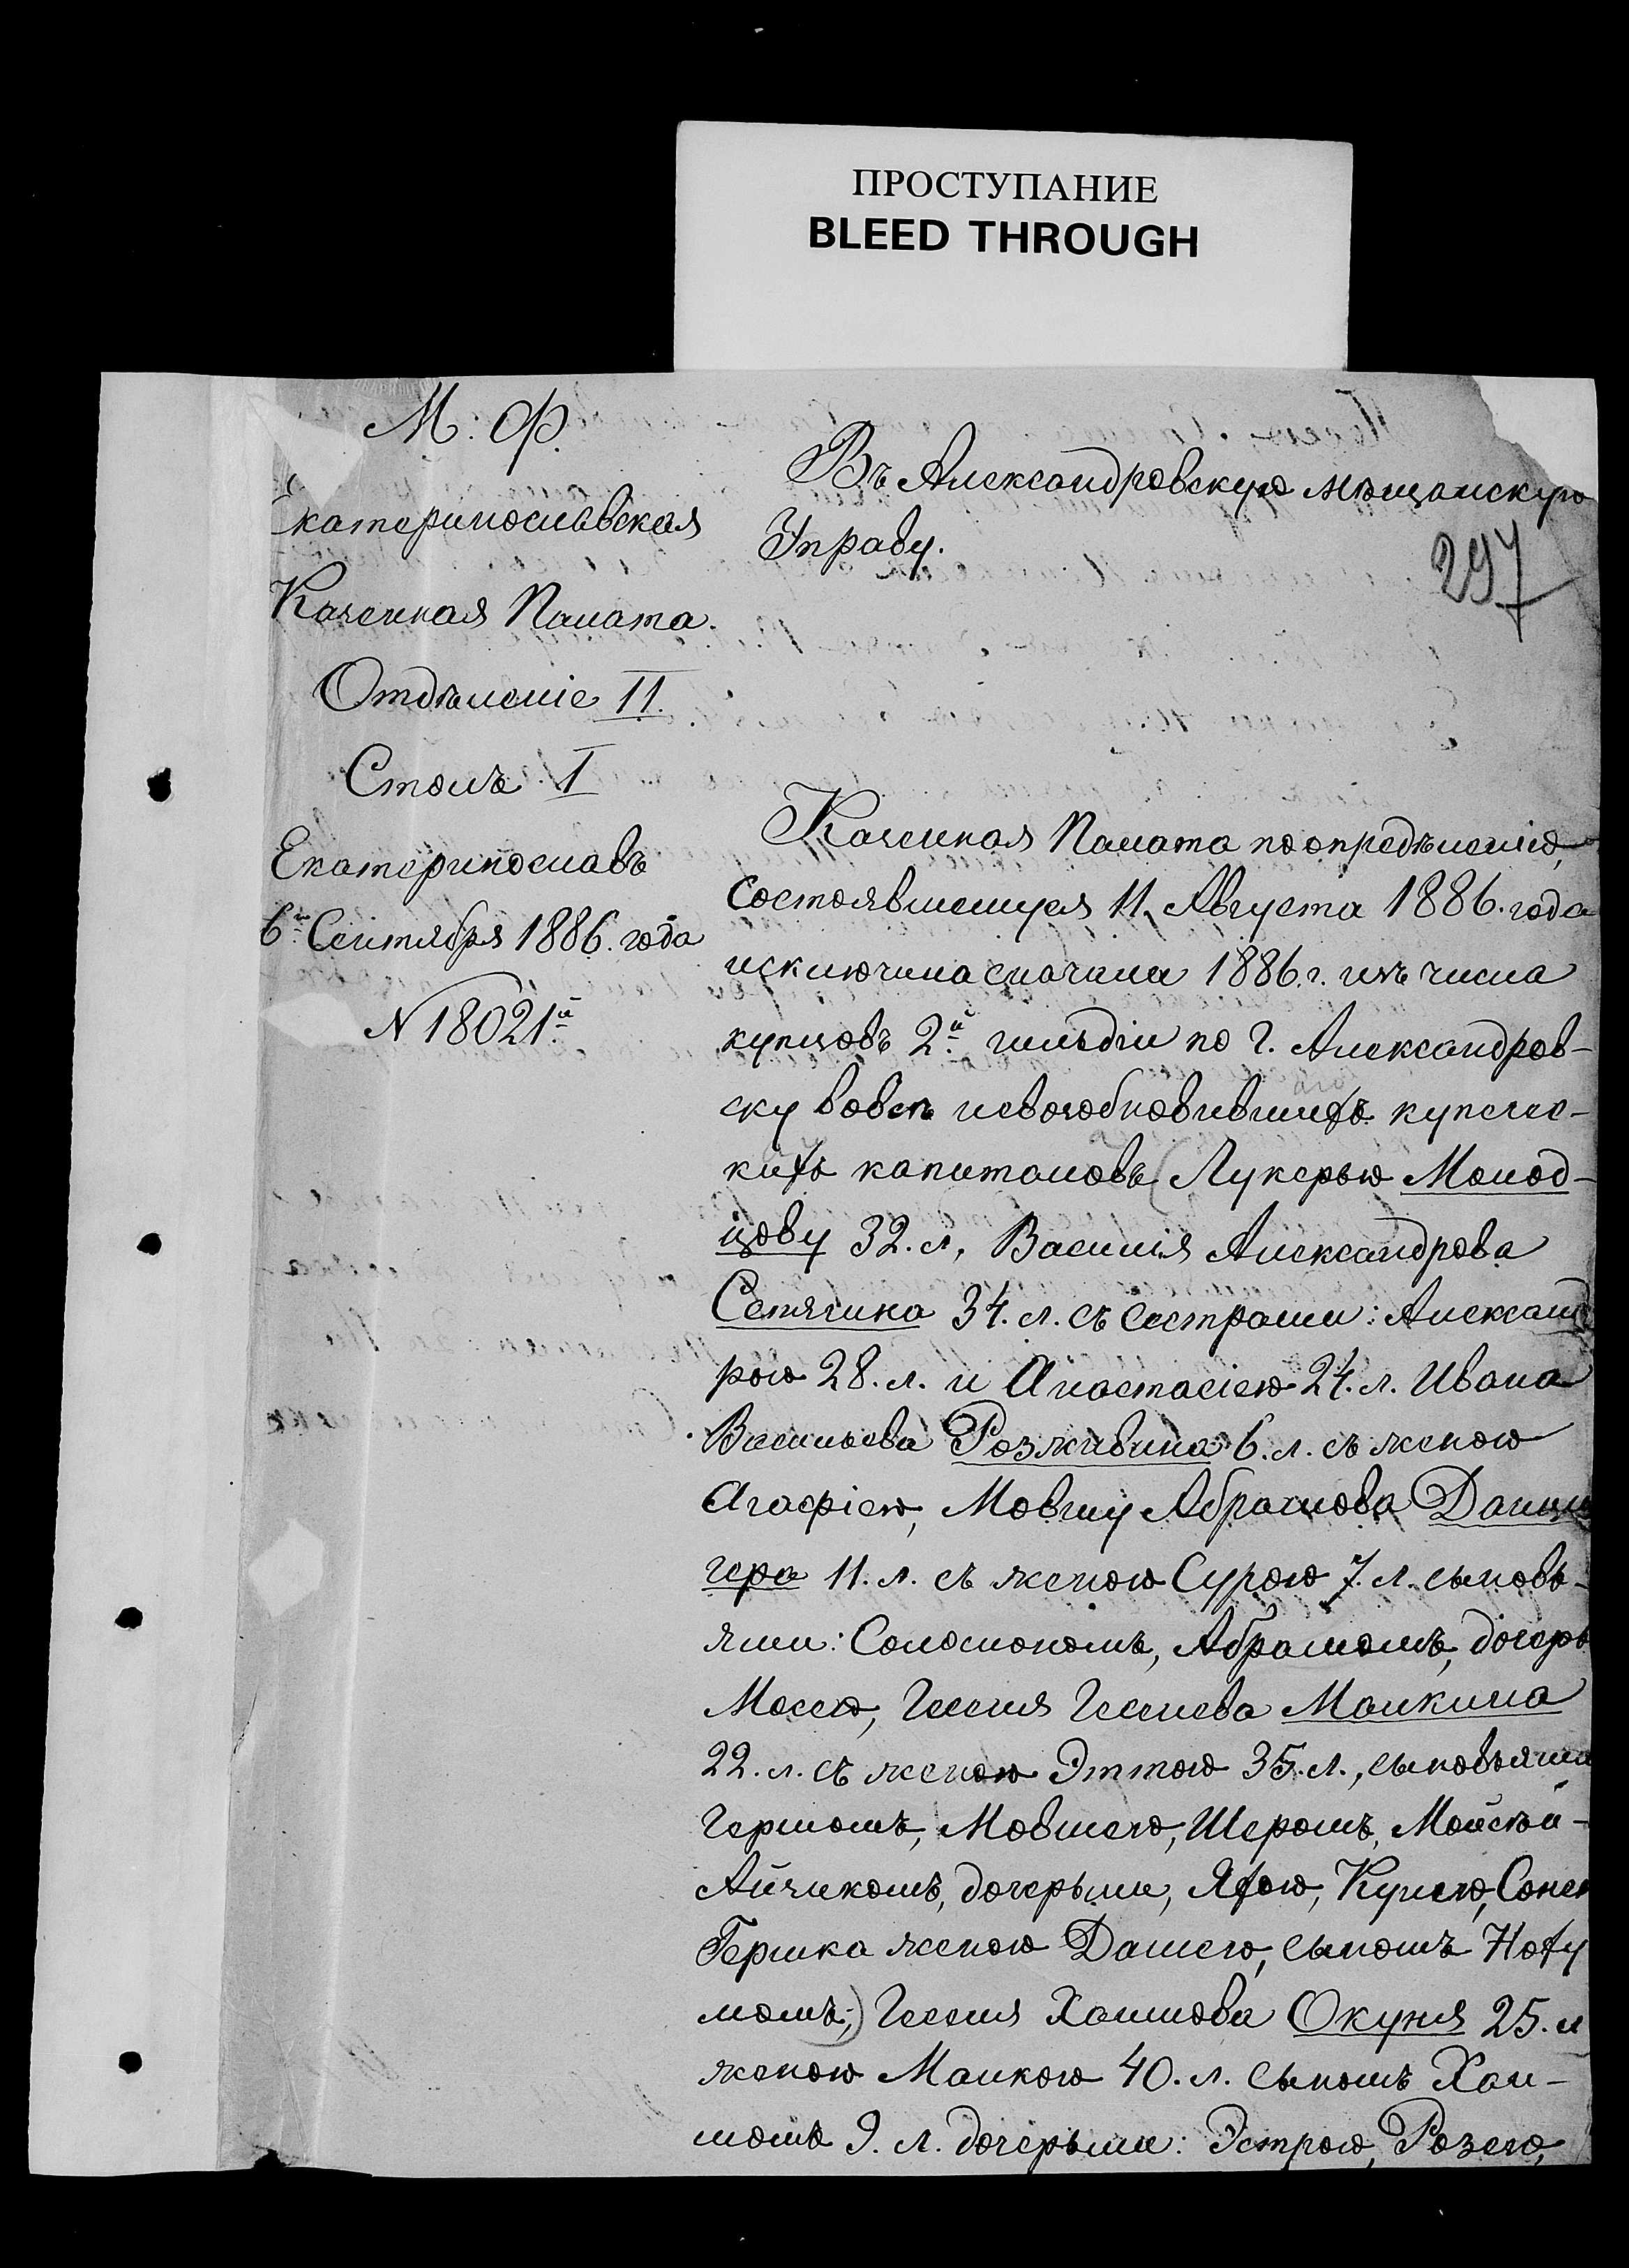 ПРОСТУПАНИЕ
BLEED THROUGH
М. Ф.
Екатеринославская
Казенная Палата.
Отдѣленіе II.
Столъ I
Екатеринославъ
6го Сентября 1886. года
N 18021.й
Въ Александровскую мѣщанскую
Управу.
297
Казенная Палата по опредѣленію,
состоявшемуся 11 Августа 1886. года
исключила сначала 1886. г. изъ числа
купцовъ 2.й гильдіи по г. Александров-
ску вовсе невозобновившихъ купечес-
кихъ капиталовъ (Лукерью Молод-
цову 32. л, Василія Александрова
Сетягина 34. л. съ сестрами: Александ
рою 28. л. и Анастасіею 24. л. Ивана
Васильева Розживина 6. л. съ женою
Агафіею, Мовшу Абрамова Данци
гера 11. л. съ женою Сурою 7. л. сыновь-
ями: Соломономъ, Абрамомъ, дочерью
Месею, Геселя Геселева Малкина
22. л. съ женою Эттою 35. л., сыновьями
Гершомъ, Мовшею, Шеромъ, Мойсѣй-
Айзикомъ, дочерьми, Яхою, Кунею, Сонею
Гершка женою Дашею, сыномъНоху
момъ;) Геселя Хаимова Окуня 25. л
женою Малкою 40. л. сыномъ Хаи-
момъ 9. л. дочерьми: Эстрою, Розею,